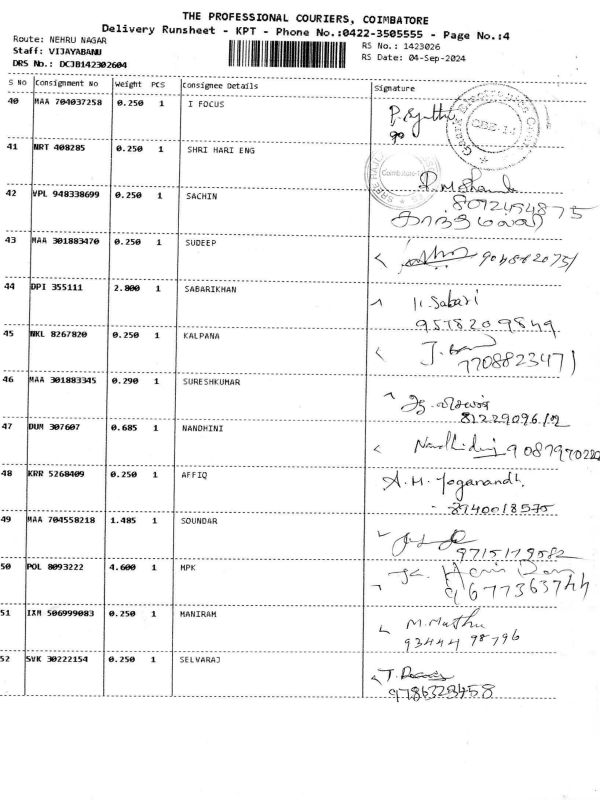 THE PROFESSIONAL COURIERS, COIMBATORE
Delivery Runsheet - KPT - Phone No.:0422-3505555 - Page No.:4
Route: NEHRU NAGAR
Staff: VIJAYABANU
DRS No.: DCJB142302604
RS No.: 1423026
RS Date: 04-Sep-2024
S NO Consignment No Weight PCS Consignee Details Signature
40 MAA 704037258 0.250 1 I FOCUS
41 NRT 408285 0.250 1 SHRI HARI ENG
42 VPL 948338699 0.250 1 SACHIN
8012454875
காந்திமல்லி
43 MAA 301883470 0.250 1 SUDEEP
44 DPI 355111 2.800 1 SABARIKHAN
Sabari
9578209849
45 NKL 8267820 0.250 1 KALPANA
7708823471
46 MAA 301883345 0.290 1 SURESHKUMAR
47 DUM 307607 0.685 1 NANDHINI
48 KRR 5268409 0.250 1 AFFIQ
A. M. Yoganandh
8940018575
49 MAA 704558218 1.485 1 SOUNDAR
9715179582
50 POL 8093222 4.600 1 MPK
9677363744
51 IXM 506999083 0.250 1 MANIRAM
M. Muthu
93444 98796
52 SVK 30222154 0.250 1 SELVARAJ